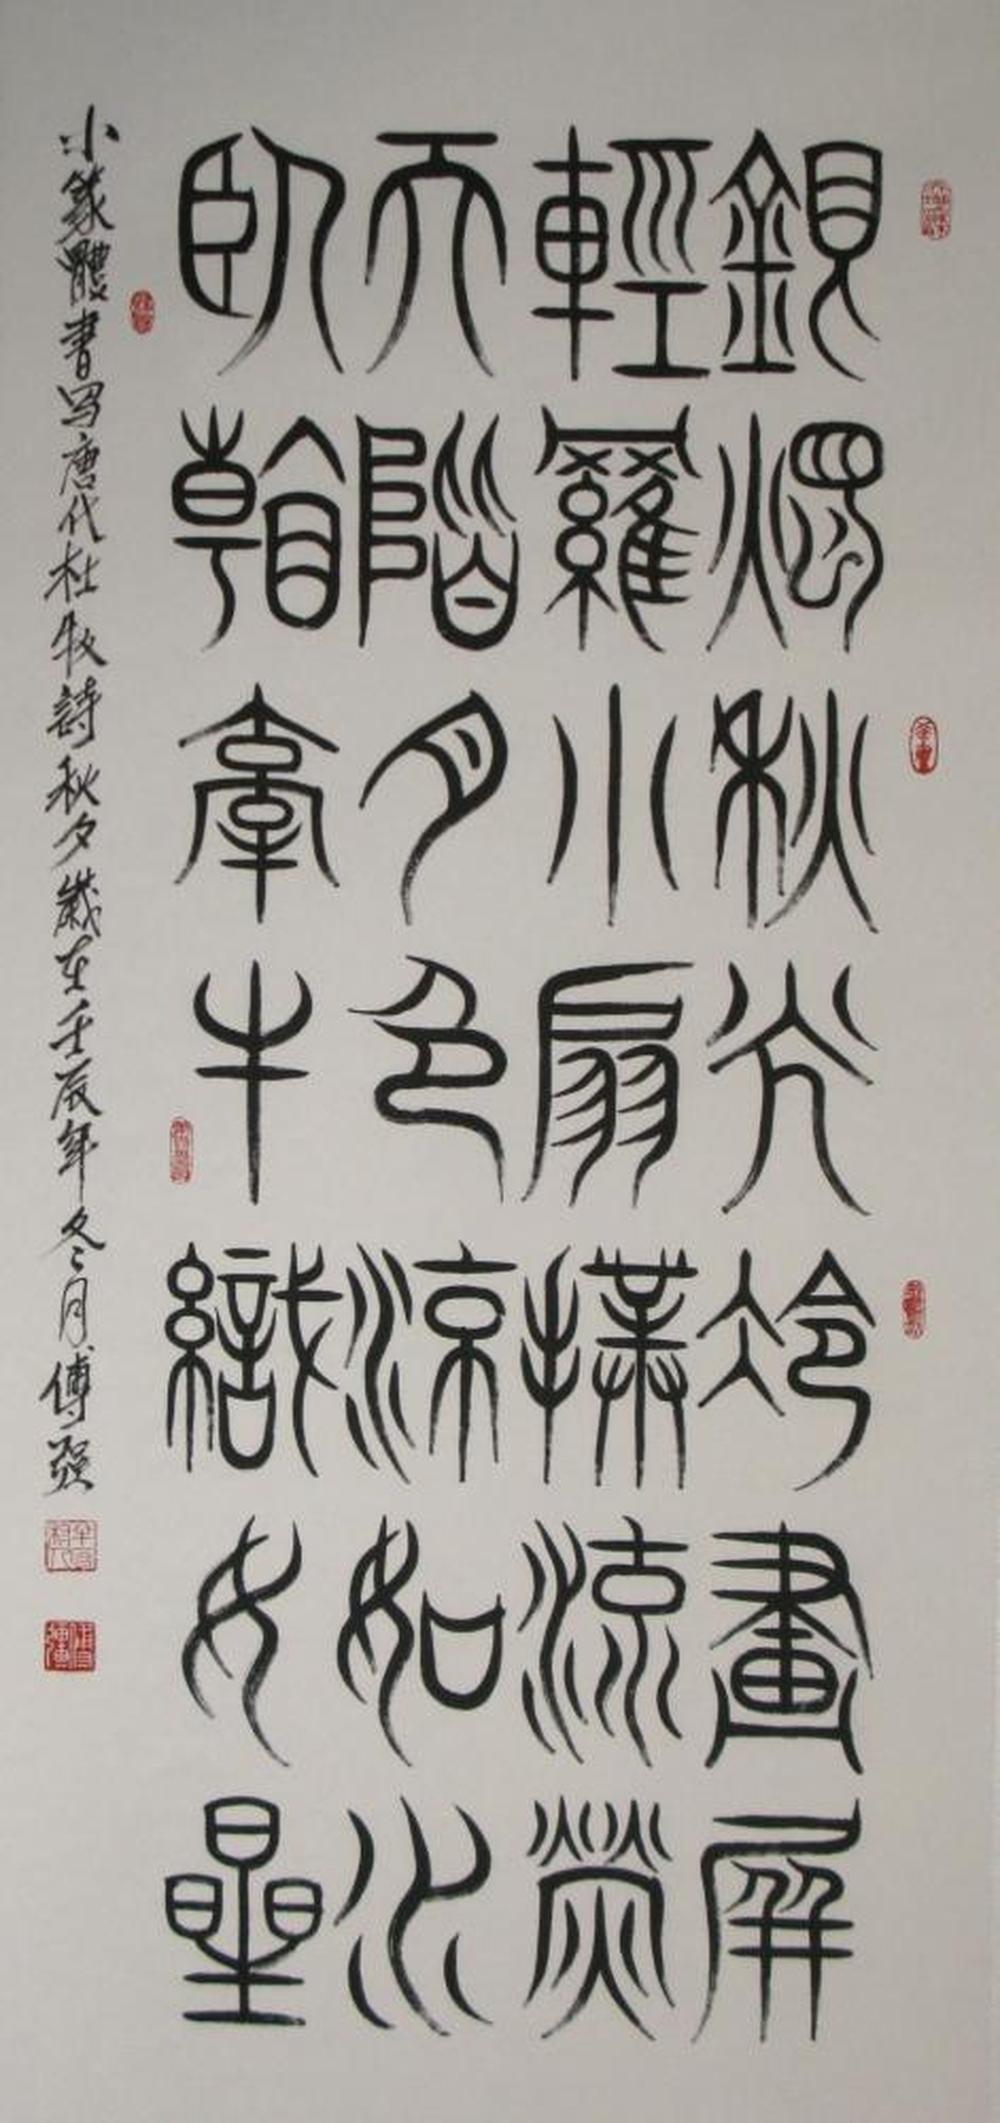 銀燭秋光冷畫屏
輕羅小扇撲流熒
天階月色涼如水
臥看牽牛織女星
小篆體書写唐代杜牧詩秋夕歲在壬辰年冬月傅强